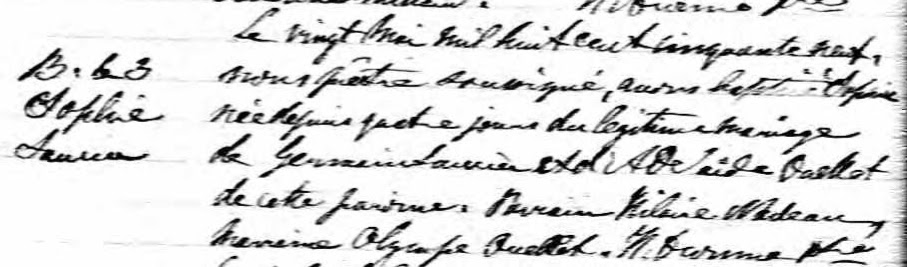 Le vingt Mai mil huit cent cinquante neuf,
B. 63 nous prêtre soussigné, avons baptisé Sophie
Sophie née depuis quatre jours du légitime mariage
de Germain et d'Adelaide Ouellet
de cette paroisse. Parrain Hilaire Nadeau,
marraine Olympe Ouellet. Ptre